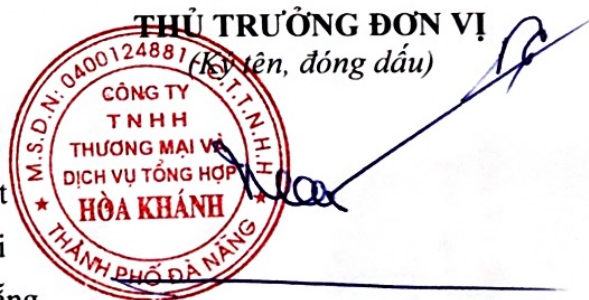 THỦ TRƯỞNG ĐƠN VỊ
(Ký tên, đóng dấu)
M.S.D.N: 0400124881-C.T.T.N.H.H
CÔNG TY
TNHH
THƯƠNG MẠI VÀ
DỊCH VỤ TỔNG HỢP
HÒA KHÁNH
THÀNH PHỐ ĐÀ NẴNG
t
i